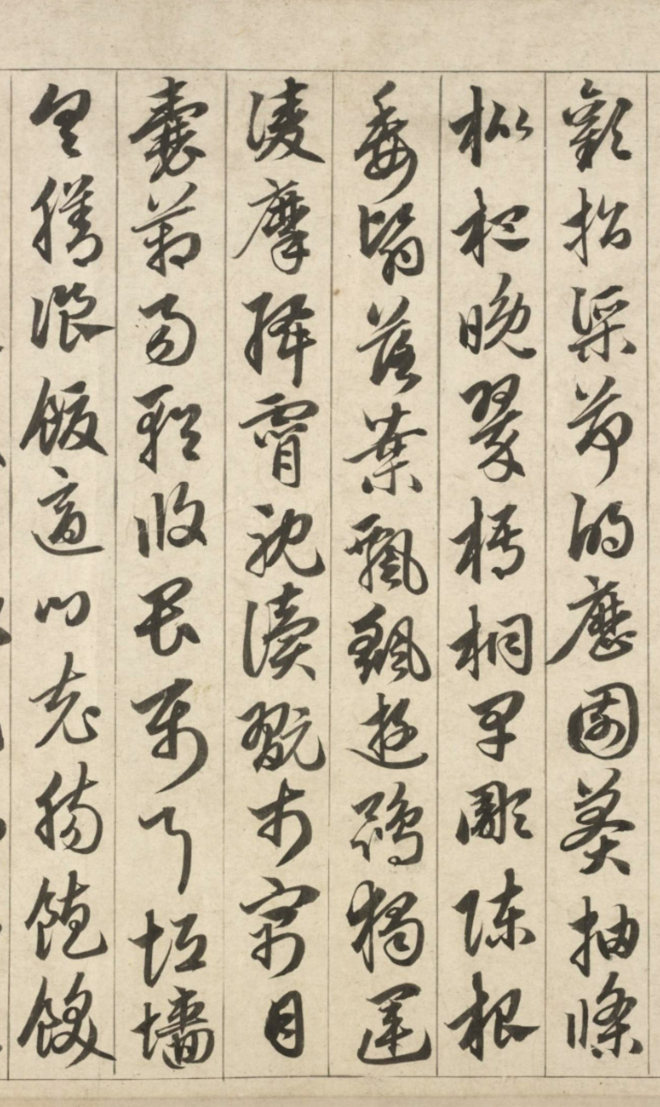 歡招渠荷的歷園莽抽條
枇杷晚翠梧桐早彫陳根
委翳落葉飄颻遊鵾獨運
淩摩絳霄耽讀翫市寓目
囊箱易輶攸畏屬耳垣墻
具膳湌飯適口充腸飽飫